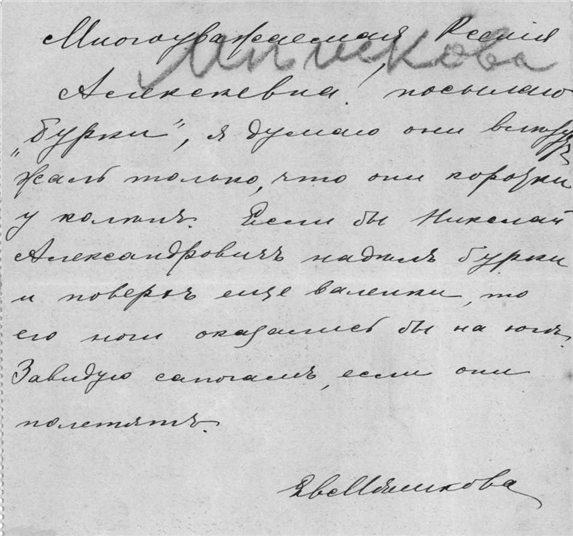 Многоуважаемая Ксенія
Алексѣевна! посылаю
„бурки", я думаю они въ пору,
жаль только, что они коротки
у колѣнъ. Если бы Николай
Александровичъ надѣлъ бурки
и поверхъ еще валенки, то
его ноги оказались бы на югѣ.
Завидую сапогамъ, если они
полетятъ.